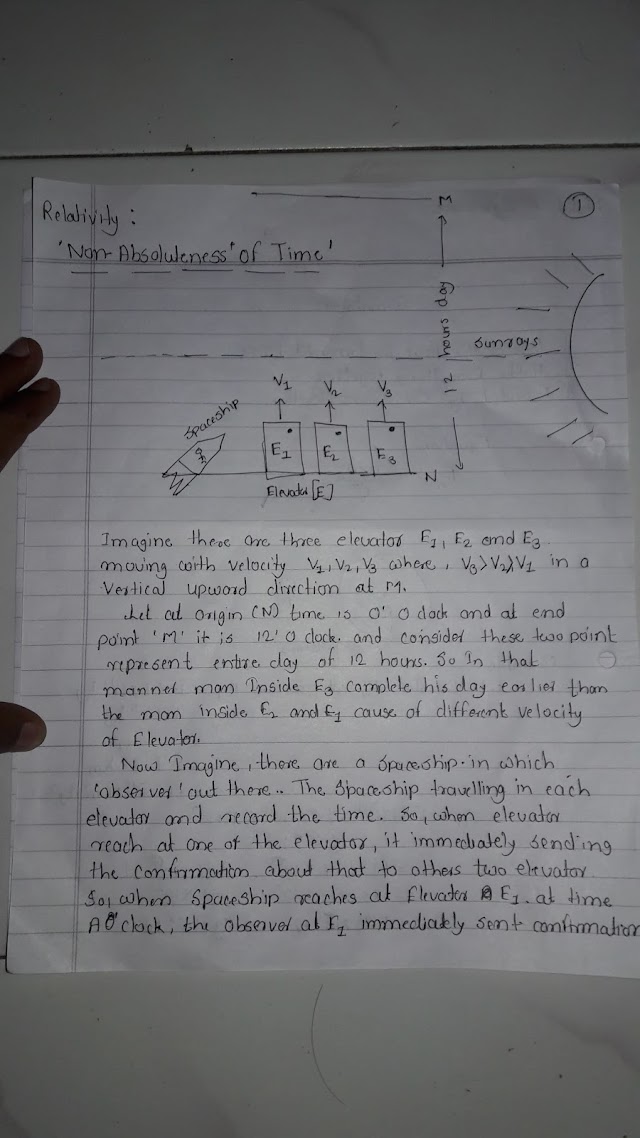 1
Relativity :
'Non-Absoluteness' of Time'
M
12 hours day
sunrays
V1 V2 V3
Spaceship
E1 E2 E3
N
Elevator [E]
Imagine there are three elevator E1, E2 and E3
moving with velocity V1, V2, V3 where, V3>V2>V1 in a
vertical upward direction at M.
Let at origin (N) time is 0' O clock and at end
point 'M' it is 12' O clock. and consider these two point
represent entire day of 12 hours. So In that
manner man Inside E3 complete his day earlier than
the man inside E2 and E1 cause of different velocity
of Elevator.
Now Imagine, there are a spaceship in which
'observer' out there.. The spaceship travelling in each
elevator and record the time. So, when elevator
reach at one of the elevator, it immediately sending
the confirmation about that to others two elevator
So, when spaceship reaches at Elevator E1. at time
A O' clock, the observer at E1 immediately sent confirmation